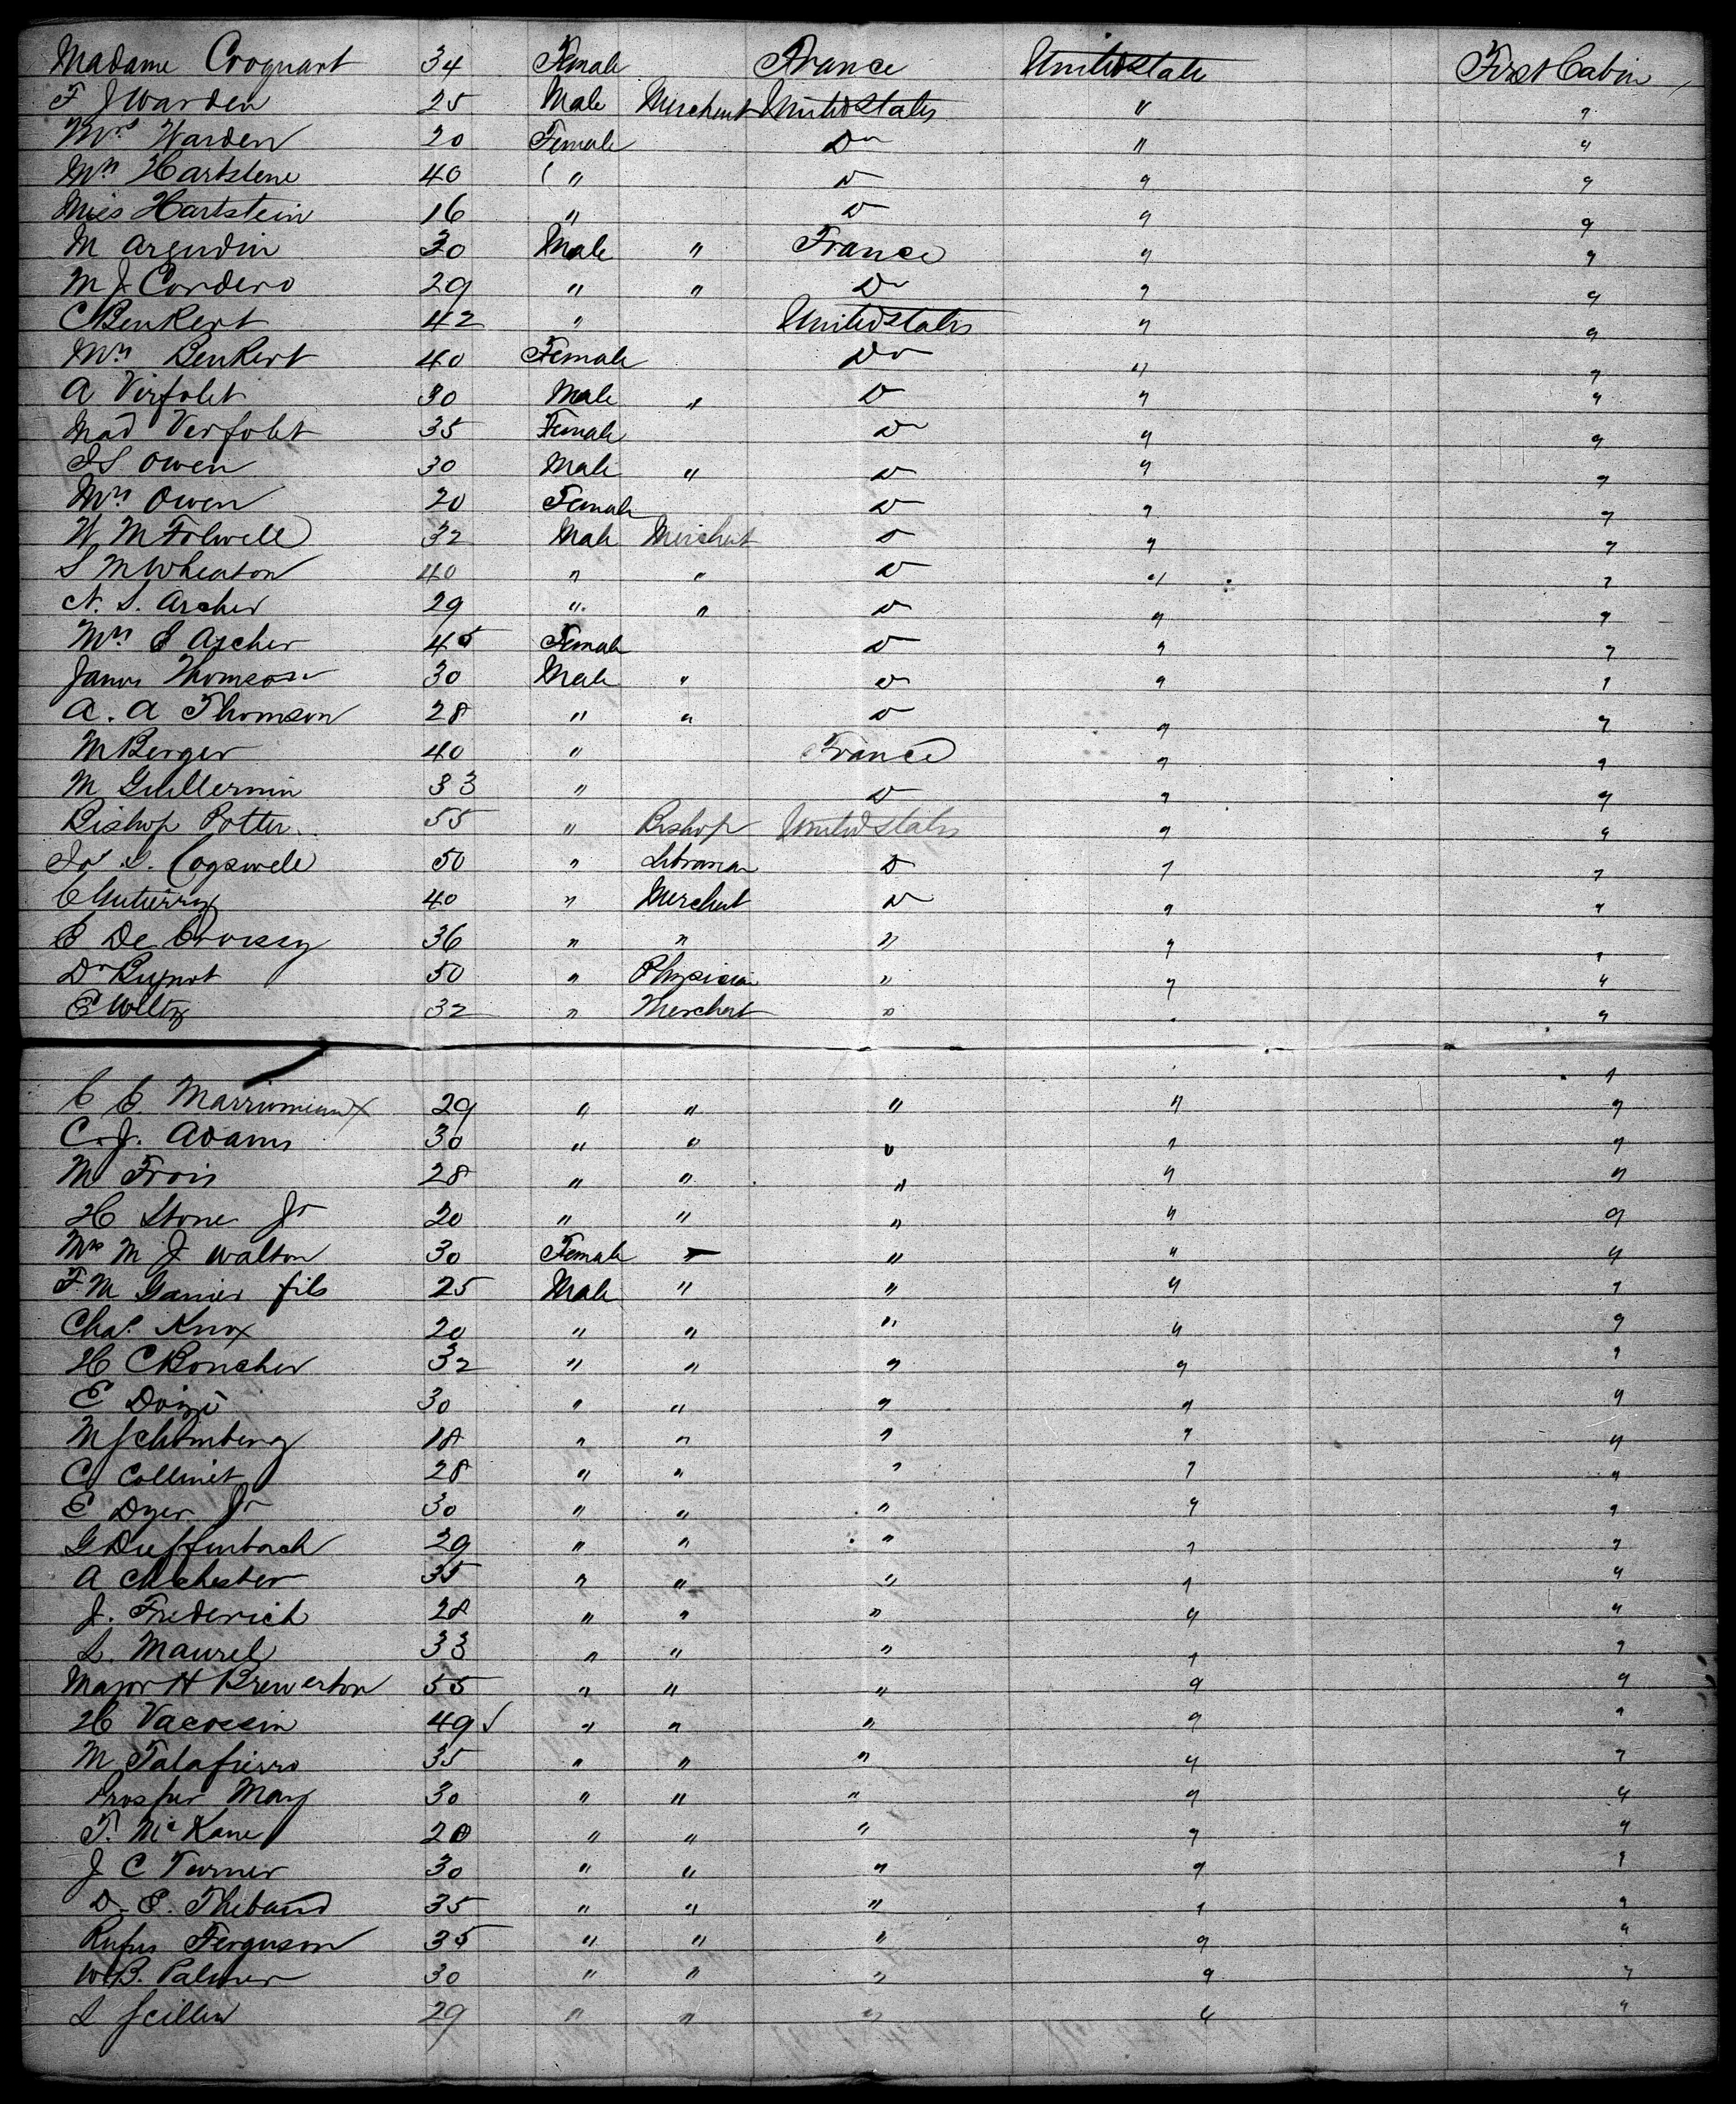 Madame Croquart 34 Female France United State First Cabin
F J Warden 25 Male Merchant United States " "
Mrs Warden 20 Female Do " "
Mrs Hartstene 40 " D " "
Miss Hartstein 16 " D " "
M Argudin 30 Male " France " "
M J Cordero 29 " " Do " "
C Benkert 42 " United States " "
Mrs Benkert 40 Female Do " "
A Virfolet 30 Male " D " "
Mad Verfolet 35 Female D " "
J S Owen 30 Male " D " "
Mrs Owen 20 Female D " "
W M Folwell 32 Male Merchant D " "
S M Wheaton 40 " " D " "
N. S. Archer 29 " " D " "
Mrs E Archer 45 Female D " "
James Thomson 30 Male " D " "
A. A Thomson 28 " " D " "
M Berger 40 " France " "
M Guillermin 33 " D " "
Bishop Potter 55 " Bishop United States " "
Jos. G. Cogswell 50 " Librarian D " "
C Gutierrez 40 " Merchant D " "
E De Croissy 36 " " " " "
Dr 50 " Physician " " "
E Woltz 32 " Merchant " " "
C C 29 " " " " "
C. J. Adams 30 " " " " "
M Frois 28 " " " " "
H Stone Jr 20 " " " " "
Mrs M J Walton 30 Female " " "
F. M Garnier fils 25 Male " " " "
Chas. Knox 20 " " " " "
H C Boncher 32 " " " " "
E 30 " " " " "
M Schomberg 18 " " " " "
C Collinet 28 " " " " "
E Dyer Jr 30 " " " " "
G Dieffenbach 29 " " " " "
A Chichester 35 " " " " "
J. Frederich 28 " " " " "
L. Maurel 33 " " " " "
Major H Brewerton 55 " " " " "
H Vacossin 49 " " " " "
M Talafierro 35 " " " " "
Prosper May 30 " " " " "
T. McKane 20 " " " " "
J C Turner 30 " " " " "
D. E. Thebaud 35 " " " " "
Rufus Ferguson 35 " " " " "
W. B. Palmer 30 " " " " "
L 29 " " " " "